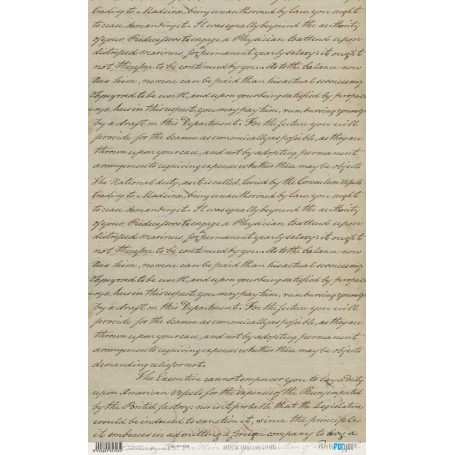 trading to Madeira, being unauthorised by law you ought
to cease demanding it. It was equally beyond the authority
of your Predecessor to engage a Physician to attend upon
distressed mariners, for permanent yearly salary; it ought
not therefore to be continued by you. As to the balance now
due him, no more can be paid than his actual services may
be proved to be worth, and upon your being satisfied by proper
in this respect, you may pay him, reimbursing yourself
by a draft on this Department. For the future you will
provide for the seamen as economically as possible, as they are
thrown upon your care, and not by adopting permanent
arrangements requiring expenses whether there may be objects
The National duty, as it is called, levied by the Consul on Vessels
trading to Madeira, being unauthorised by law you ought
to cease demanding it. It was equally beyond the authority
of your Predecessor to engage a Physician to attend upon
distressed mariners, for permanent yearly salary; it ought
not therefore to be continued by you. As to the balance now
due him, no more can be paid than his actual services may
be proved to be worth, and upon your being satisfied by proper
in this respect, you may pay him, reimbursing yourself
by a draft on this Department. For the future you will
provide for the seamen as economically as possible, as they are
thrown upon your care, and not by adopting permanent
arrangements requiring expenses whether there may be objects
demanding relief or not.
The Executive cannot empower you to lay a duty
upon American Vessels for the expenses of the
by the British factory: nor is it probable that the Legislature
would be induced to sanction it, since the principle
it embraces in admitting a foreign company to lay a